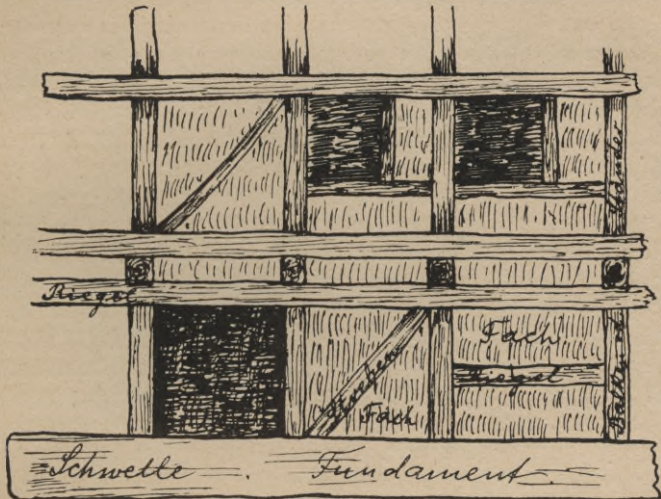 Ständer
Riegel
Fach
Riegel
Streben
Fach
Schwelle. Fundament.